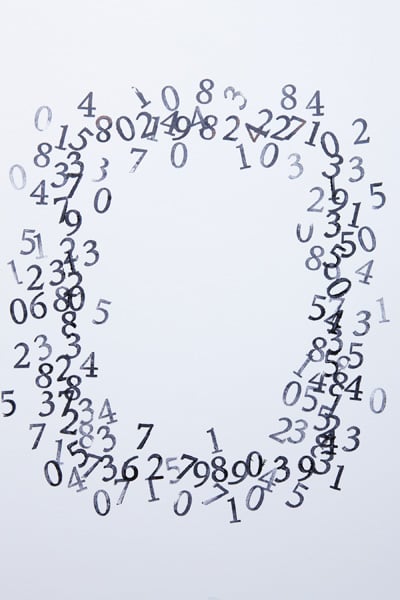 4 1 0 8 3 8 4
0 1 5 8 0 2 1 4 9 8 2 4 2 2 7 1 0 2
8 3 7 0 1 0 3 3 3
0 4 3 7 3 0 2 9 1 5
7 9 0 3 5 0
5 1 2 3 8 4
1 2 3 0
0 6 8 0 5 5 4 3 1
8
2 3 3 8 3 5
8 2 4 1 4 8 4
5 3 7 8 0 5 0
2 3 4
7 1 5 8 3 7 1 2 3 4 3
0 4 7 3 6 2 5 7 9 8 9 0 4 3 9 3 1
0 7 1 0 7 1 0 5